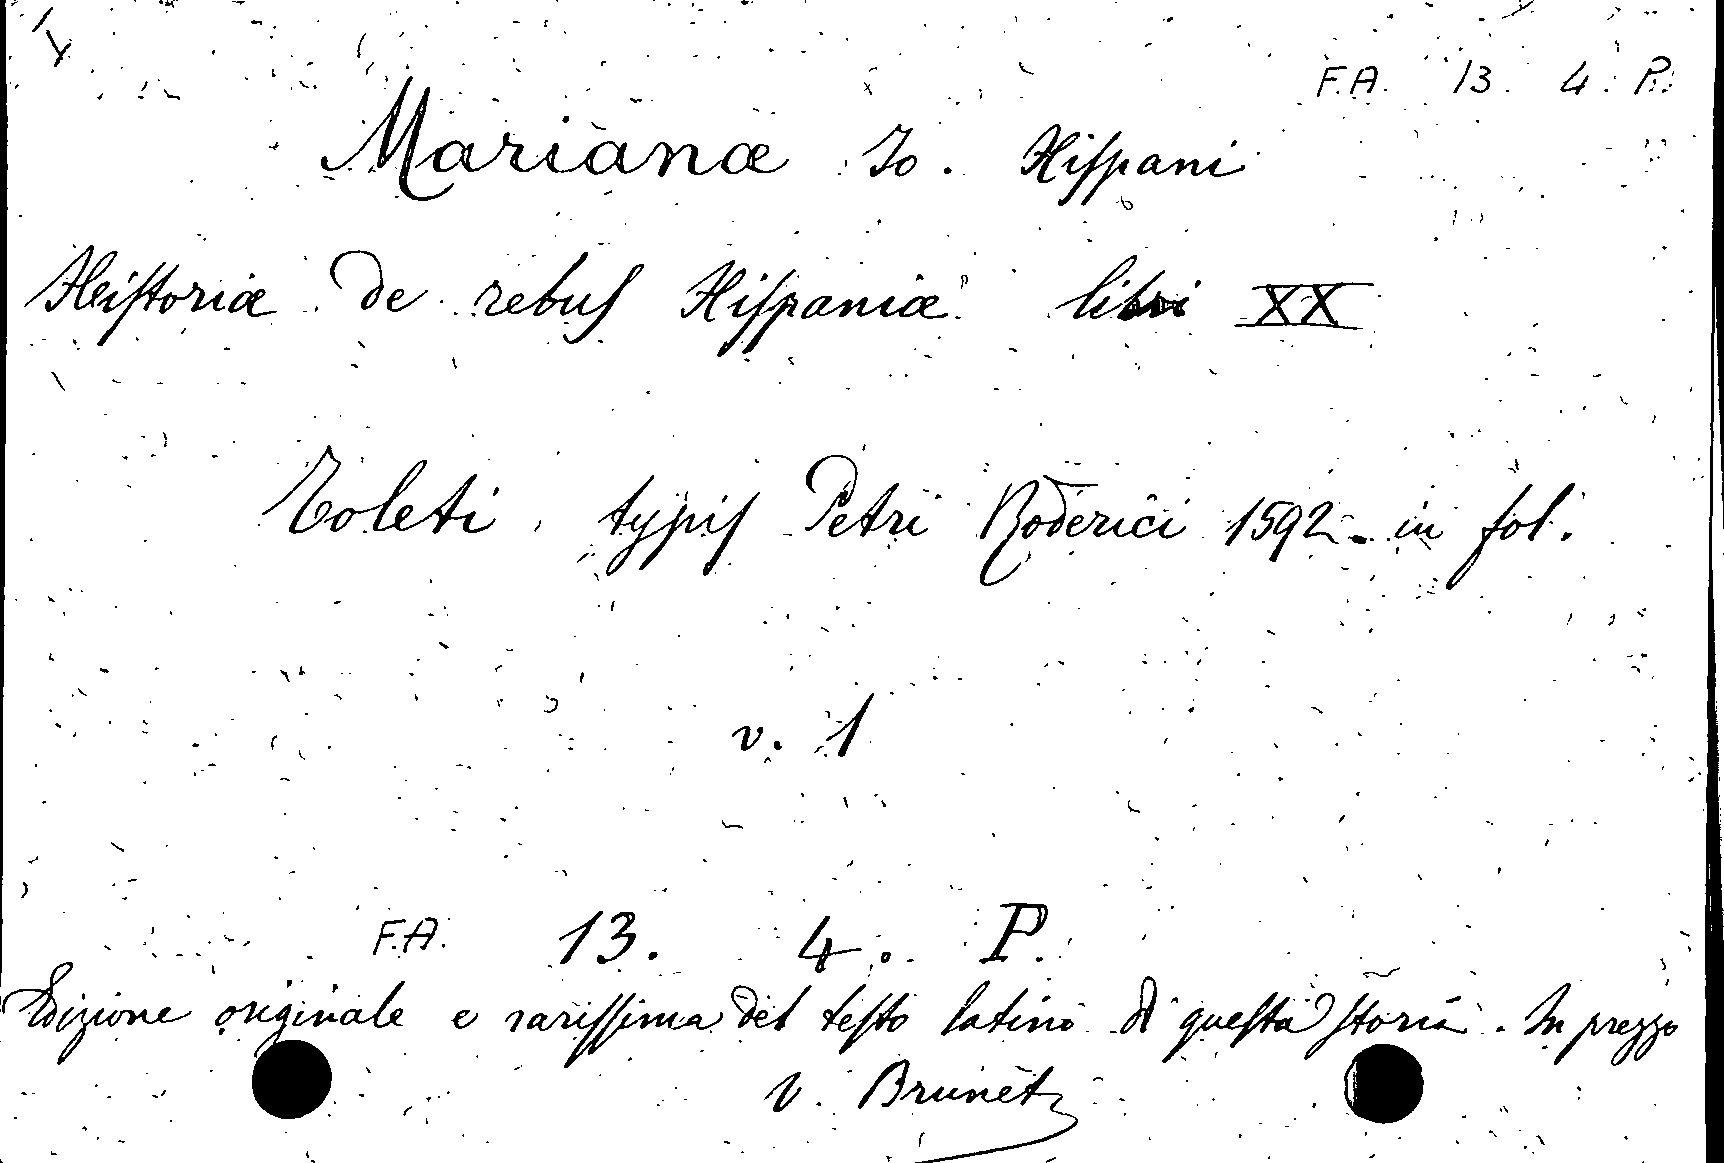 F.A. 13. 4. P.
Marianæ Io. Hispani
Historiæ de rebus Hispaniæ libri XX
Toleti, typis Petri Roderici 1592. in fol.
v. 1
F.A. 13. 4. P.
Edizione originale e rarissima del testo latino di questa storia. In prezzo
v. Brunet